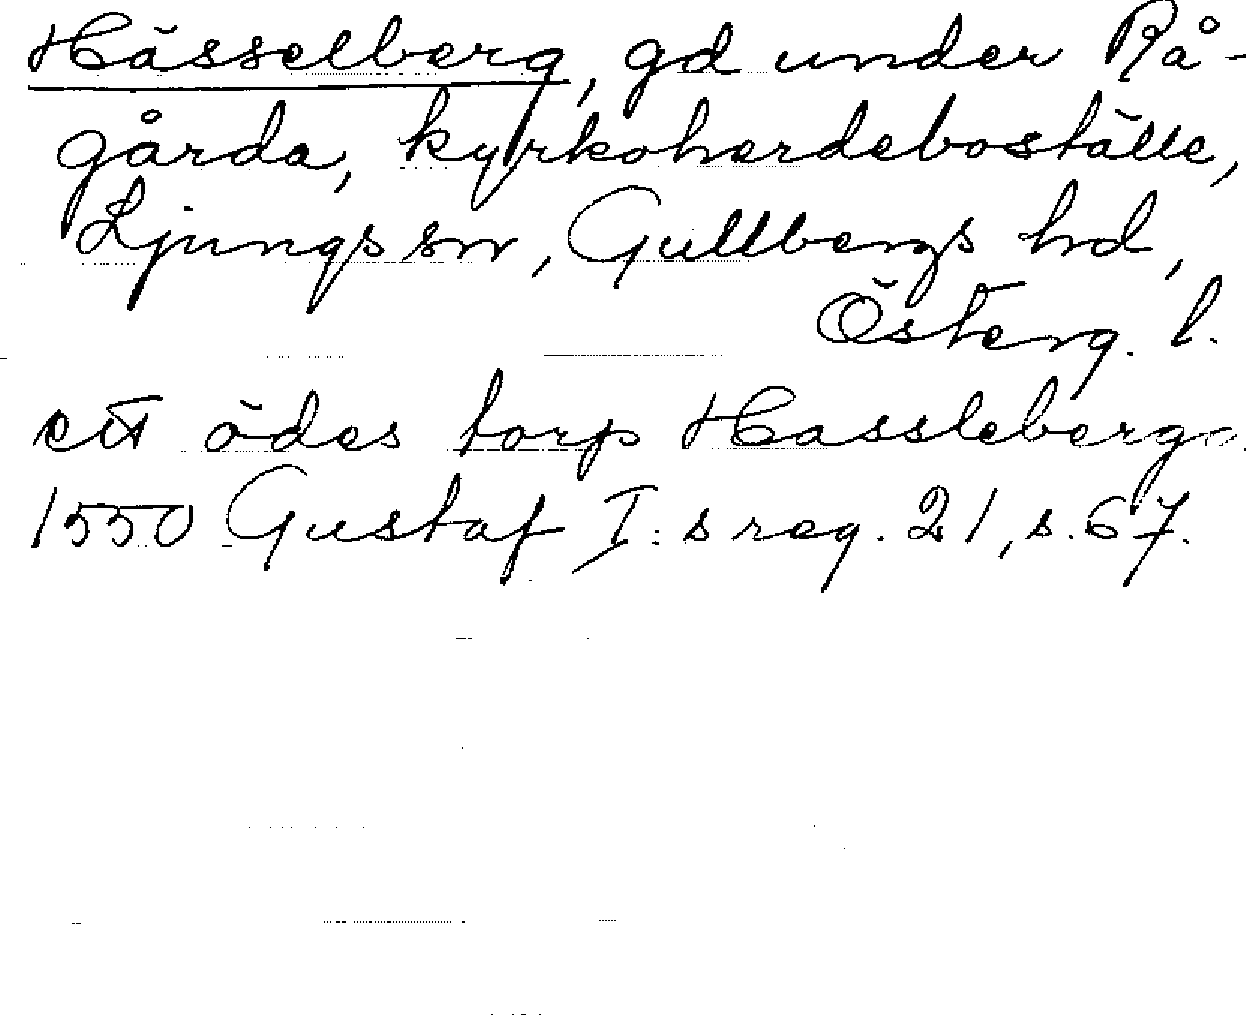 Hässelberg, gd under Rå-
gårda, kyrkoherdeboställe,
Ljungs sn, Gullbergs hd,
Österg. l.
ett ödes torp Hassleberga
1550 Gustaf I:s reg. 21, s. 67.